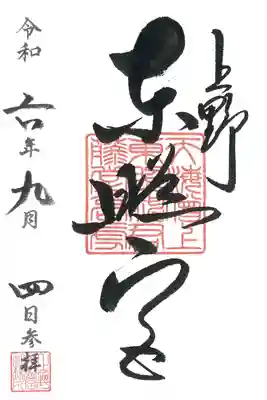 上野
東照宮
令和六年九月
四日参拝